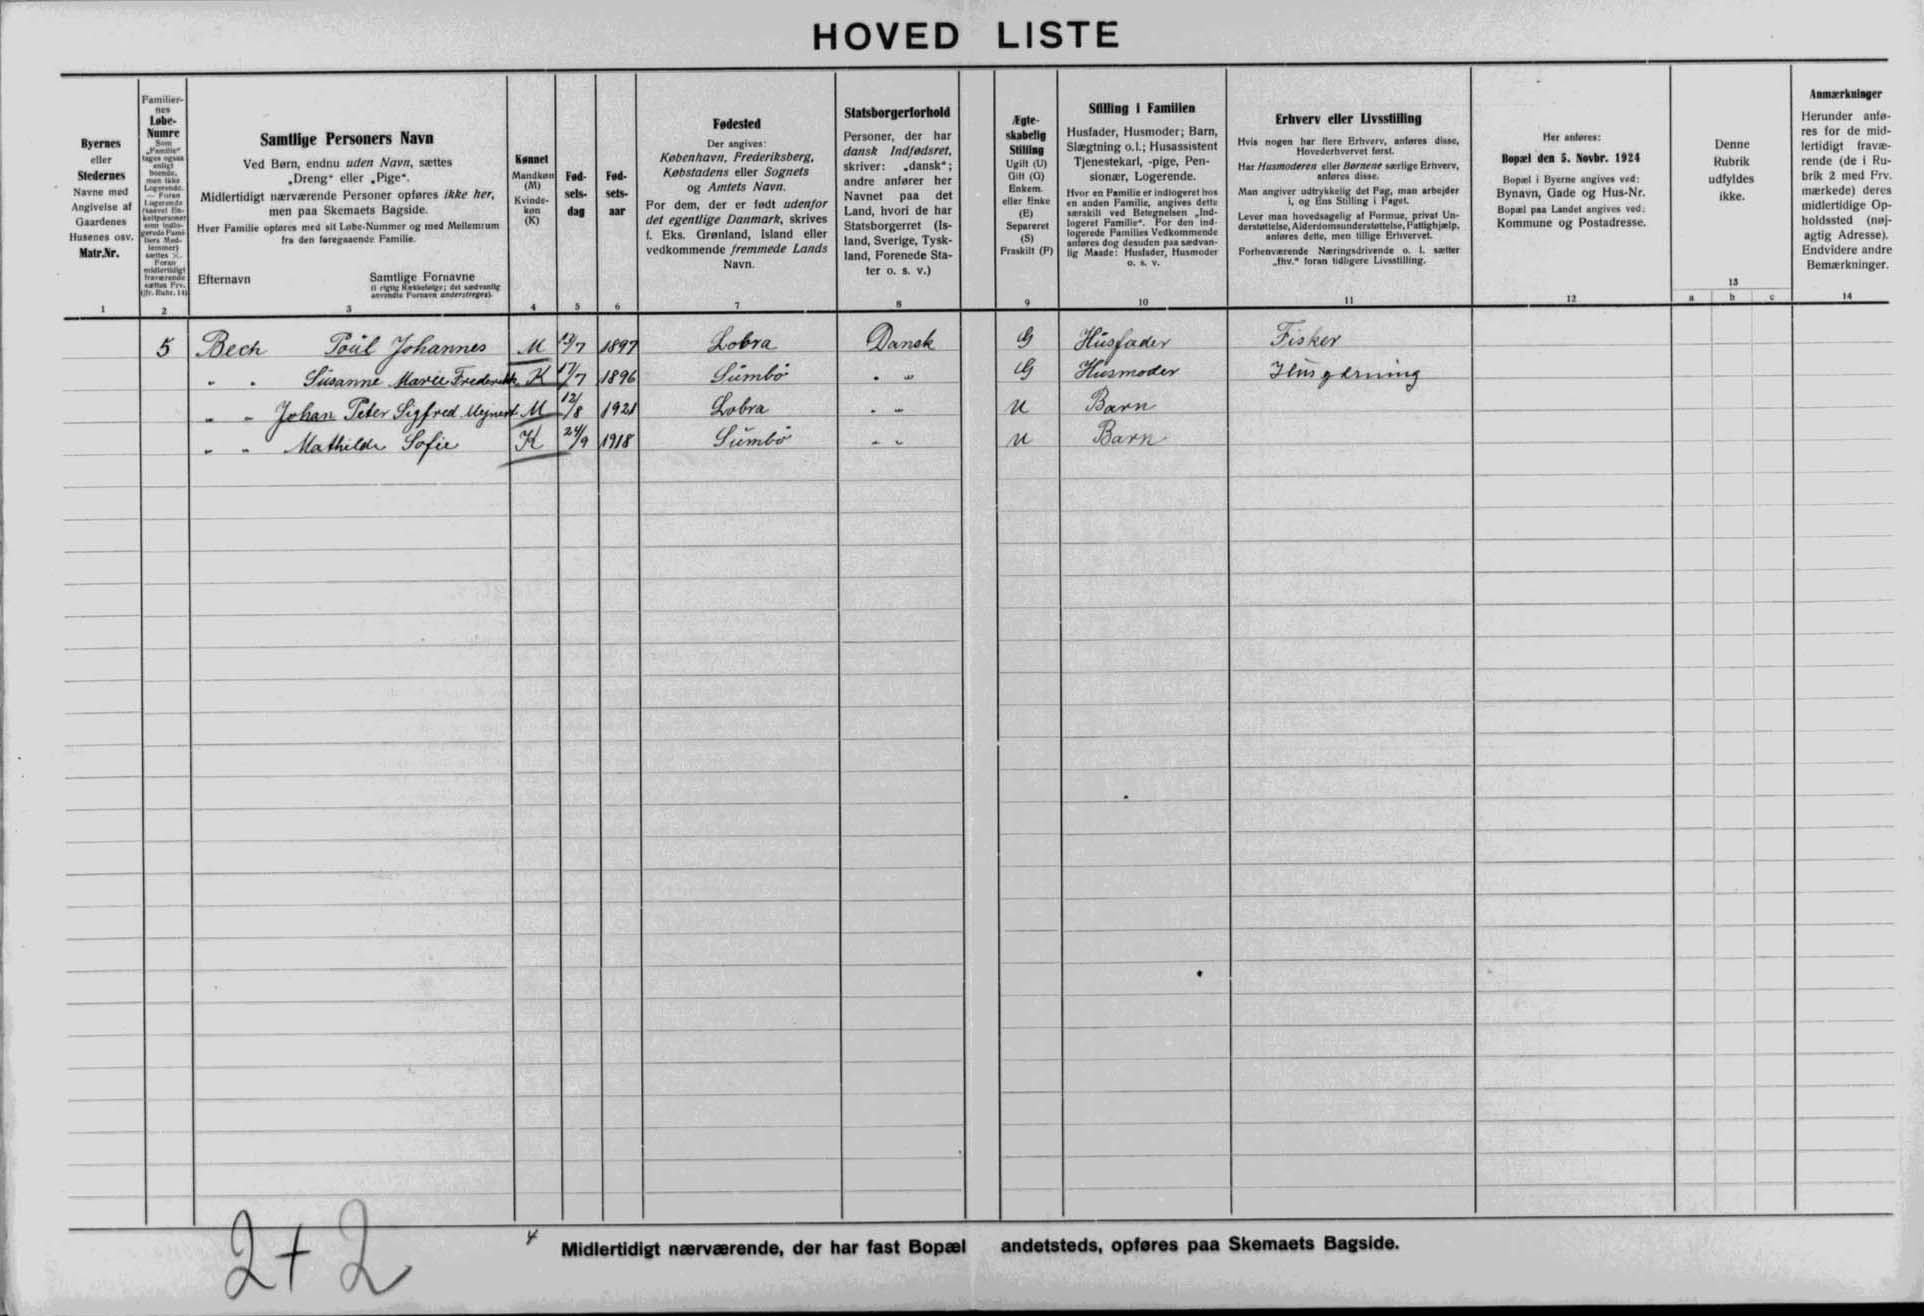 HOVED LISTE
Byernes
eller
Stedernes
Navne med
Angivelse af
Gaardenes
Husenes osv.
Matr.Nr.
1
Familier-
nes
Løbe-
Numre
Som
„Familie“
tages ogsaa
enligt
boende,
men ikke
Logerende.
— Foran
Logerende
(saavel En-
keltpersoner
som indlo-
gerede Fami-
liers Med-
lemmer)
sættes
Foran
midlertidigt
fraværende
sættes Frv.
(jfr. Rubr. 14)
2
Samtlige Personers Navn
Ved Børn, endnu uden Navn, sættes
„Dreng“ eller „Pige“.
Midlertidigt nærværende Personer opføres ikke her,
men paa Skemaets Bagside.
Hver Familie opføres med sit Løbe-Nummer og med Mellemrum
fra den foregaaende Familie.
Efternavn
Samtlige Fornavne
(i rigtig Rækkefølge; det sædvanlig
anvendte Fornavn understreges).
3
Kønnet
Mandkøn
(M)
Kvinde-
køn
(K)
4
Fød-
sels-
dag
5
Fød-
sels-
aar
6
Fødested
Der angives:
København, Frederiksberg,
Købstadens eller Sognets
og Amtets Navn.
For dem, der er født udenfor
det egentlige Danmark, skrives
f. Eks. Grønland, Island eller
vedkommende fremmede Lands
Navn.
7
Statsborgerforhold
Personer, der har
dansk Indfødsret,
skriver: „dansk“;
andre anfører her
Navnet paa det
Land, hvori de har
Statsborgerret (Is-
land, Sverige, Tysk-
land, Forenede Sta-
ter o. s. v.)
8
Ægte-
skabelig
Stilling
Ugift (U)
Gift (G)
Enkem.
eller Enke
(E)
Separeret
(S)
Fraskilt (F)
9
Stilling i Familien
Husfader, Husmoder; Barn,
Slægtning o.l.; Husassistent
Tjenestekarl, -pige, Pen-
sionær, Logerende.
Hvor en Familie er indlogeret hos
en anden Familie, angives dette
særskilt ved Betegnelsen „Ind-
logeret Familie“. For den ind-
logerede Families Vedkommende
anføres dog desuden paa sædvan-
lig Maade: Husfader, Husmoder
o. s. v.
10
Erhverv eller Livsstilling
Hvis nogen har flere Erhverv, anføres disse,
Hovederhvervet først.
Har Husmoderen eller Børnene særlige Erhverv,
anføres disse.
Man angiver udtrykkelig det Fag, man arbejder
i, og Ens Stilling i Faget.
Lever man hovedsagelig af Formue, privat Un-
derstøttelse, Alderdomsunderstøttelse, Fattighjælp,
anføres dette, men tillige Erhvervet.
Forhenværende Næringsdrivende o. l. sætter
„fhv.“ foran tidligere Livsstilling.
11
Her anføres:
Bopæl den 5. Novbr. 1924
Bopæl i Byerne angives ved:
Bynavn, Gade og Hus-Nr.
Bopæl paa Landet angives ved:
Kommune og Postadresse.
12
Denne
Rubrik
udfyldes
ikke.
13
a b c
Anmærkninger
Herunder anfø-
res for de mid-
lertidigt fravæ-
rende (de i Ru-
brik 2 med Frv.
mærkede) deres
midlertidige Op-
holdssted (nøj-
agtig Adresse).
Endvidere andre
Bemærkninger.
14
5 Bech Poul Johannes M 1897 Lobra Dansk G Husfader Fisker
" " Susanne Marie Frederikke K 17/7 1896 Sumbø " " G Husmoder Husgerning
" " Johan Peter Sigfred Mejnert M 12/8 1921 Lobra " " U Barn
" " Mathilde Sofie K 24/9 1918 Sumbø " " U Barn
2 + 2
4 Midlertidigt nærværende, der har fast Bopæl andetsteds, opføres paa Skemaets Bagside.